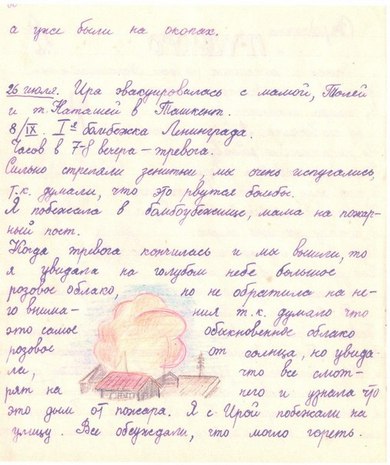 а уже были на окопах.
26 июля. Ира эвакуировалась с мамой, Толей
и т. Наташей в Ташкент.
8/IX. Iая бомбежка Ленинграда.
Часов в 7-8 вечера - тревога.
Сильно стреляли зенитки, мы очень испугались,
т.к. думали, что это рвутся бомбы.
Я побежала в бомбоубежище, мама на пожар-
ный пост.
Когда тревога кончилась и мы вышли, то
я увидала на голубом небе большое
розовое облако, но не обратила на не-
го внима- ния т.к. думала что
это самое обыкновенное облако
розовое от солнца, но увида-
ла, что все смот-
рят на него и узнала что
это дым от пожара. Я с Ирой побежали на
улицу. Все обсуждали, что могло гореть.